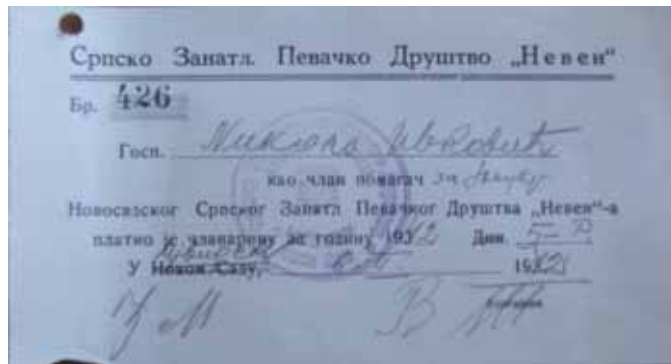 Српско Занатл. Певачко Друштво „Невен“
Бр. 426
Госп. Никола
као члан помагач за
Новосадског Српског Занатл Певачког Друштва „Невен“-а
платио је чланарину за годину 1932 Дин. 5-
У Новом Саду, 1932